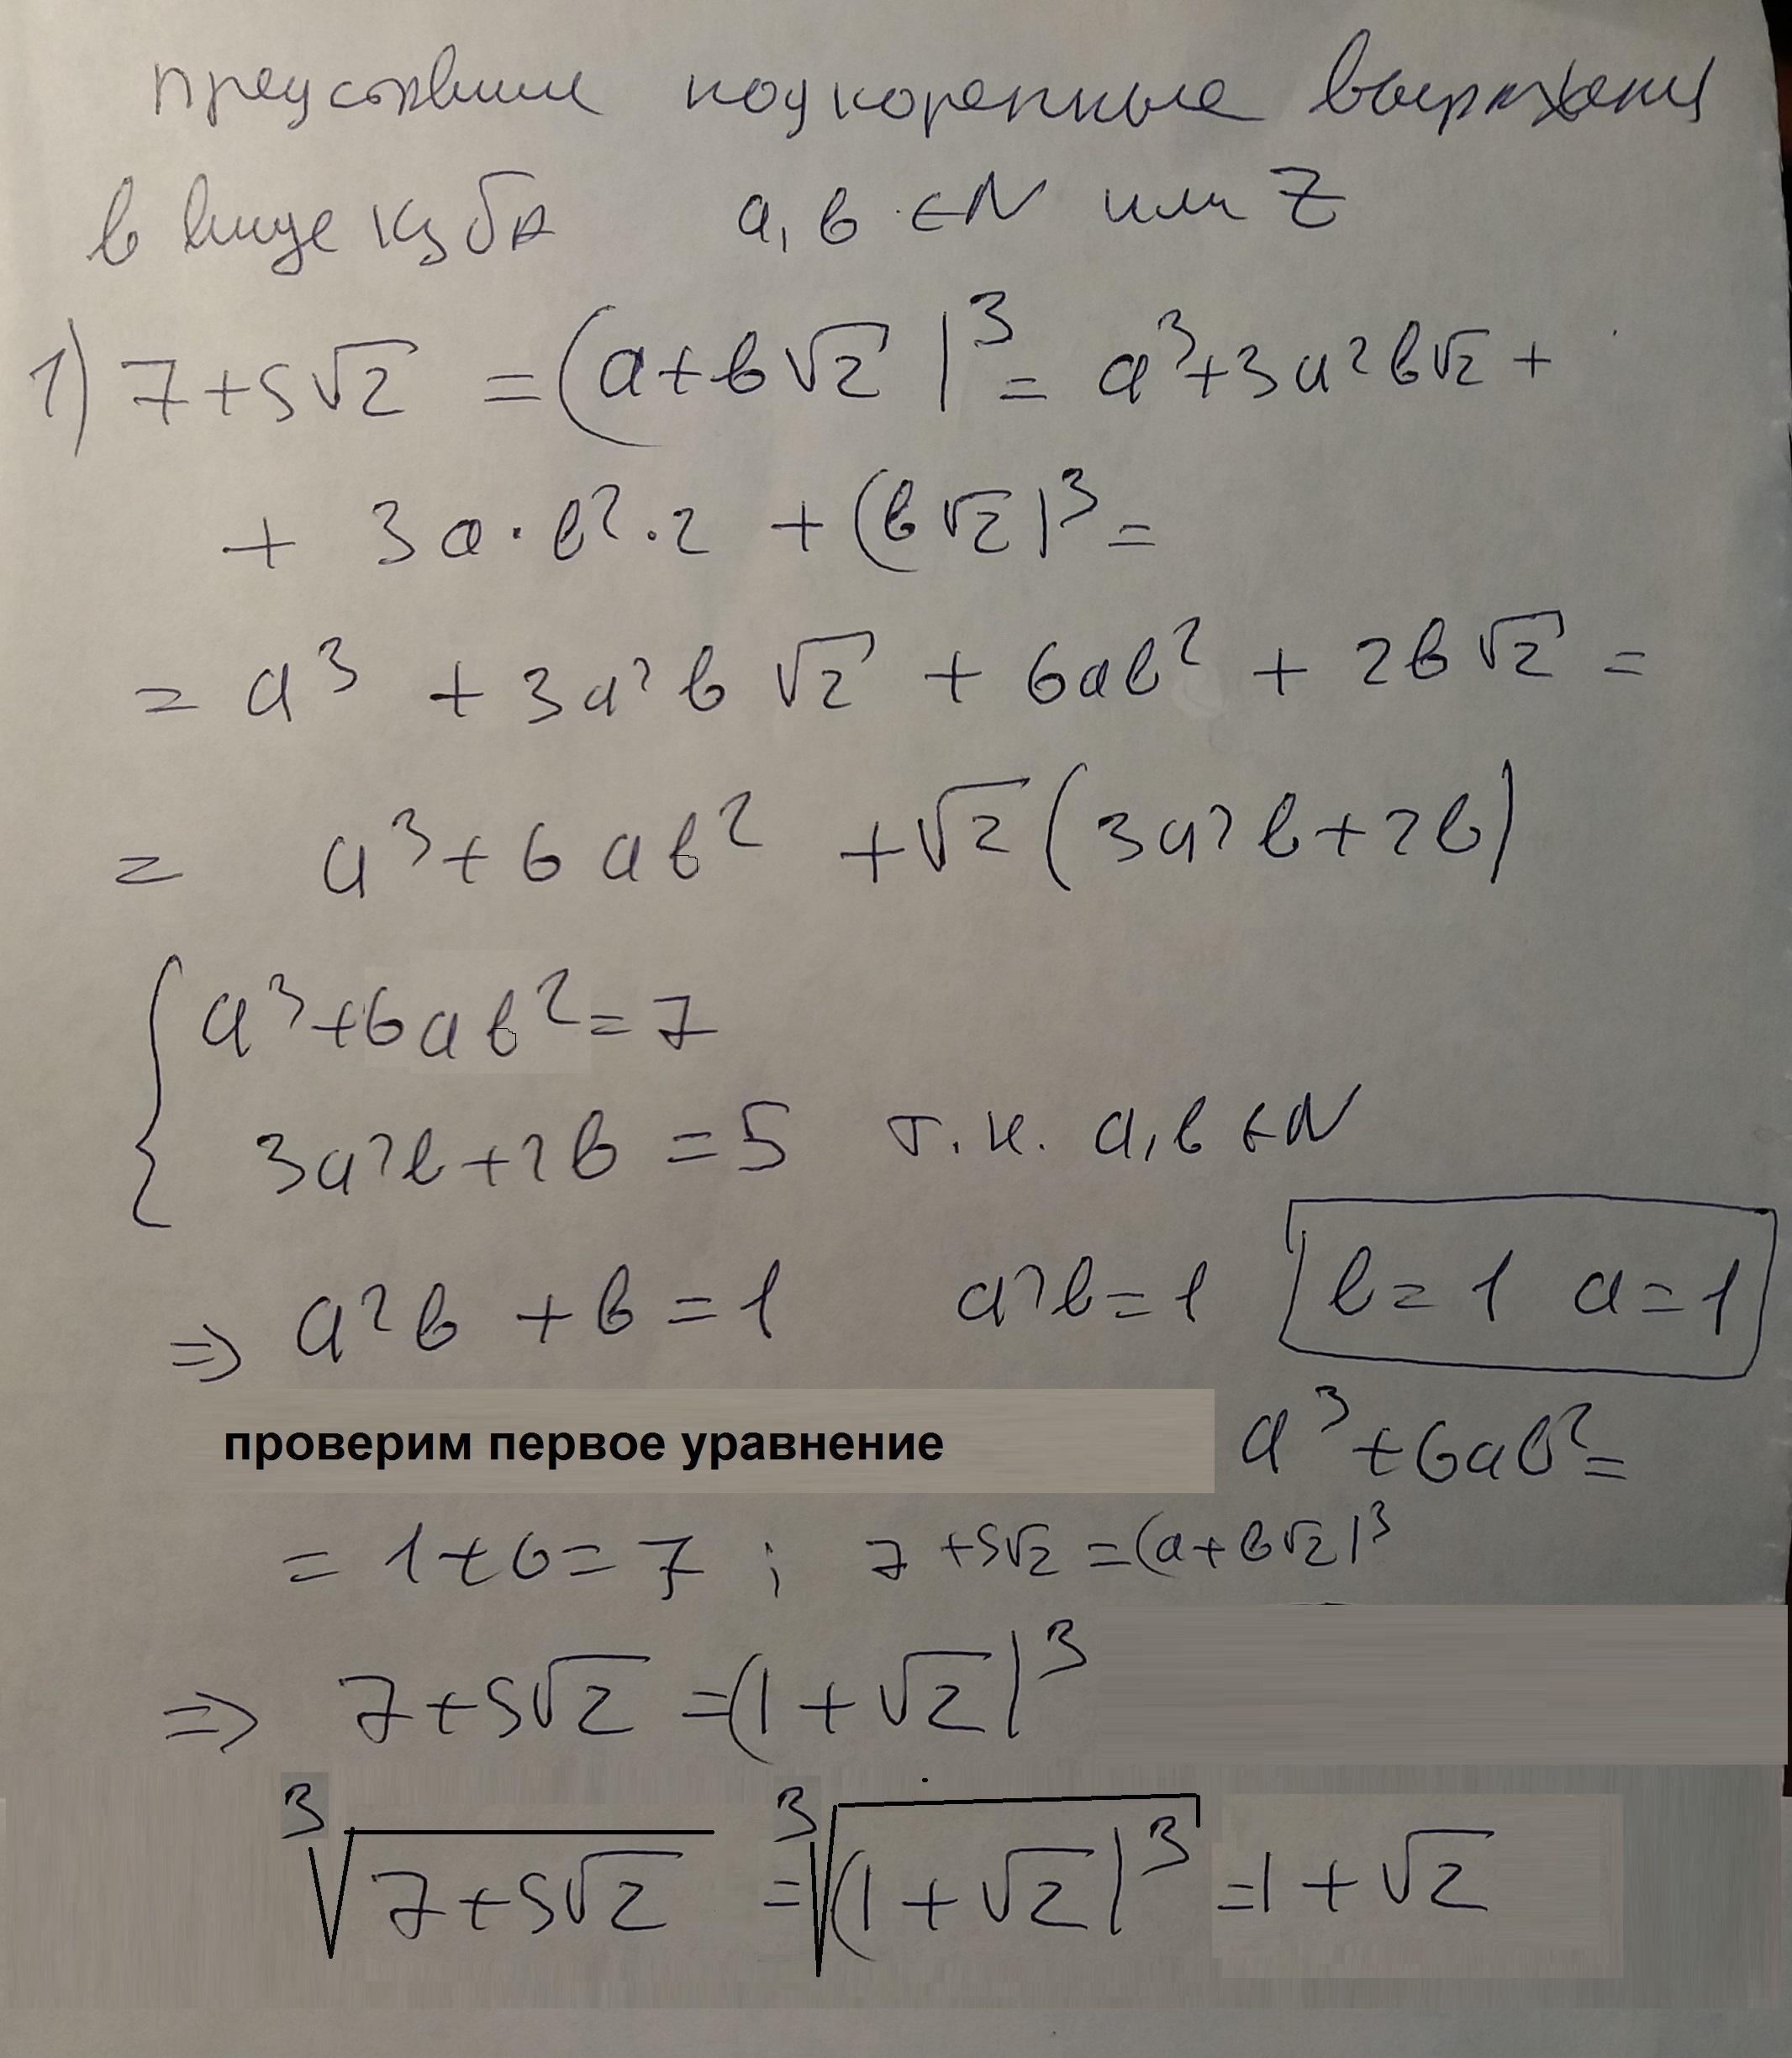 представим подкоренные выражения
в виде куба a, b ∈ N или Z
1) 7+5√2 = (a+b√2)³ = a³+3a²b√2 +
+ 3a·b²·2 + (b√2)³ =
= a³ + 3a²b√2 + 6ab² + 2b√2 =
= a³+6ab² +√2(3a²b+2b)
a³+6ab²=7
3a²b+2b = 5 т.к. a,b ∈ N
⇒ a²b + b = 1 a²b=1 b=1 a=1
проверим первое уравнение a³+6ab²=
= 1+6=7 ; 7+5√2=(a+b√2)³
⇒ 7+5√2 =(1+√2)³
³√(7+5√2) = ³√((1+√2)³) =1+√2